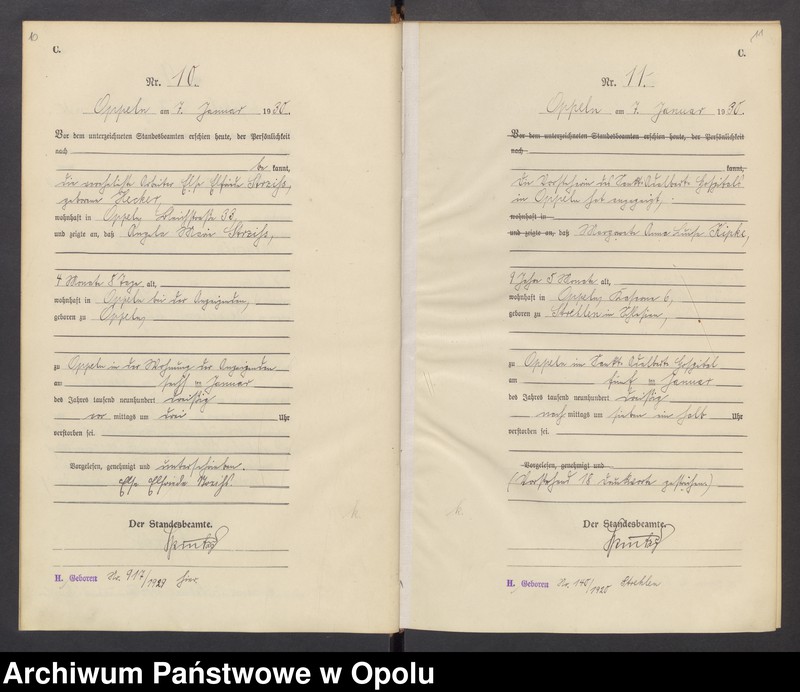 10
C.
Nr. 10.
Oppeln am 7. Januar 1930.
Vor dem unterzeichneten Standesbeamten erschien heute, der Persönlichkeit
nach
be kannt,
die Else Elfriede
geborene Hecker,
wohnhaft in Oppeln 33,
und zeigte an, daß Angela
4 Monate 8 Tage alt,
wohnhaft in Oppeln bei der Anzeigenden,
geboren zu Oppeln,
zu Oppeln in der Wohnung der Anzeigenden
am sechs ten Januar
des Jahres tausend neunhundert dreißig
vor mittags um drei Uhr
verstorben sei.
Vorgelesen, genehmigt und unterschrieben.
Else Elfriede
Der Standesbeamte.
H. Geboren Nr. 917/1929 hier
11
C.
Nr. 11.
Oppeln am 7. Januar 1930.
Vor dem unterzeichneten Standesbeamten erschien heute, der Persönlichkeit
nach
kannt,
Der Vorsteher des Sankt Adalbert Hospitals
in Oppeln hat angezeigt,
wohnhaft in
und zeigte an, daß Margarete Anna Luise Kipke,
9 Jahre 5 Monate alt,
wohnhaft in Oppeln, 6,
geboren zu Strehlen in Schlesien,
zu Oppeln im Sankt Adalbert Hospital
am fünf ten Januar
des Jahres tausend neunhundert dreißig
nach mittags um sieben ein halb Uhr
verstorben sei.
Vorgelesen, genehmigt und
(Vorstehend 18 Druckworte gestrichen.)
Der Standesbeamte.
H. Geboren Nr. 140/1920 Strehlen
Archiwum Państwowe w Opolu